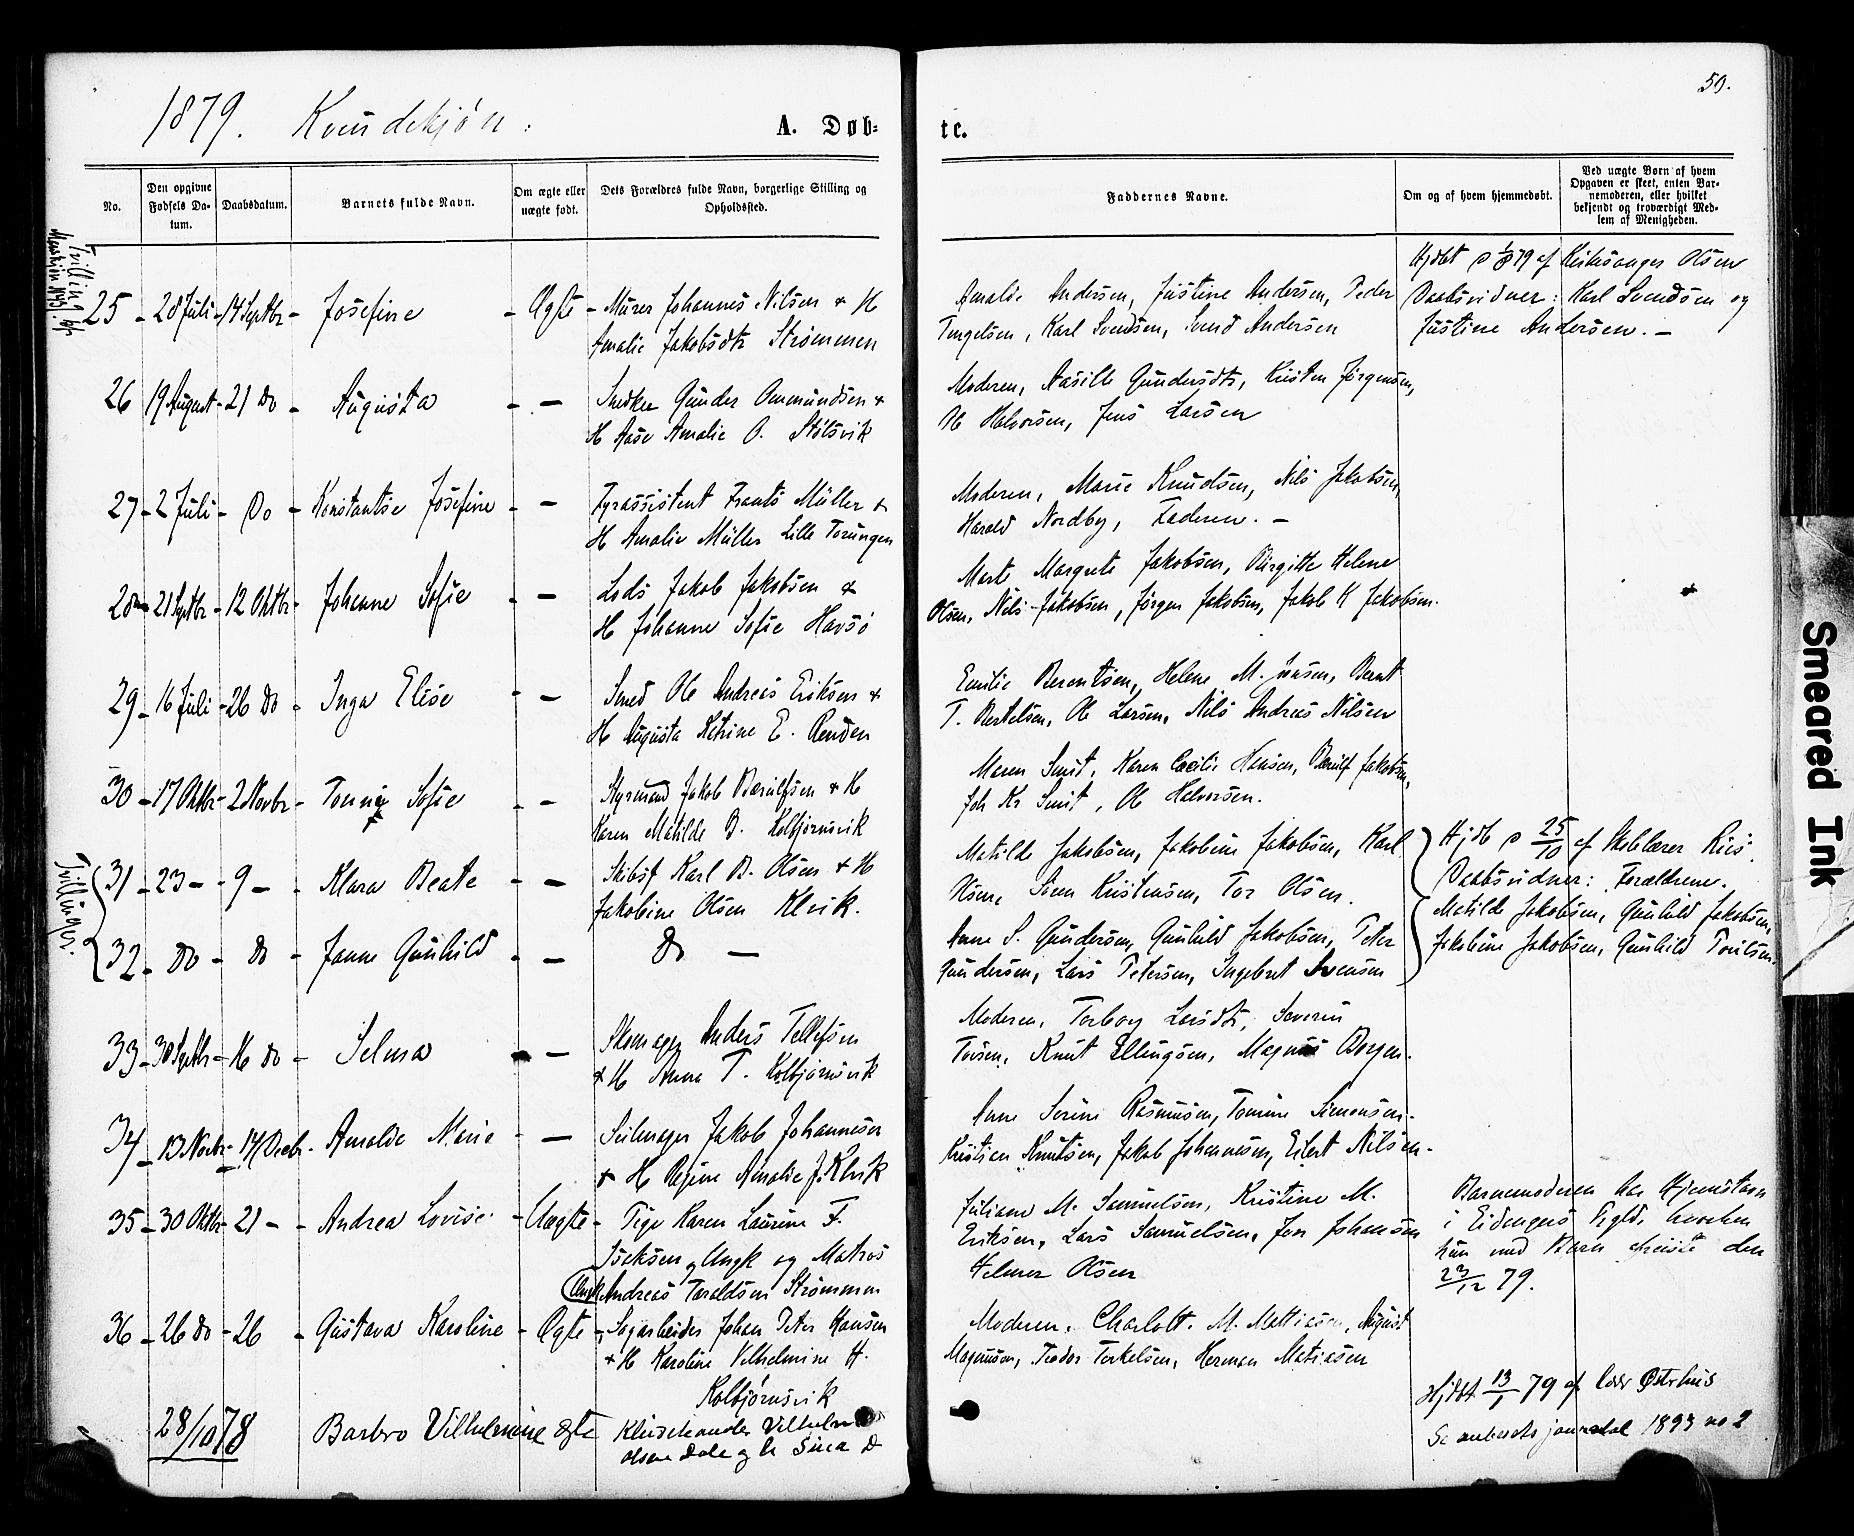 50.
1879. Kvindekjøn.
A. Døb-
te.
No.
Den opgivne Fødsels Da-tum.
Daabsdatum.
Barnets fulde Navn.
Om ægte eller uægte født.
Dets Forældres fulde Navn, borgerlige Stilling og Opholdsted.
Faddernes Navne.
Om og af hvem hjemmedøbt.
Ved uægte Børn af hvem Opgaven er skeet, enten Bar-nemoderen, eller hvilket bekjendt og troværdigt Med-lem af Menigheden.
Tvilling
25 - 28 Juli - 14 Septbr - Josefine - Ægte - Murer Johannes Nilsen & H
Amalie Jakobsdtr Strømmen
Amalie Andersen, Justine Andersen, Peder
Tengelsen, Karl Svendsen, Svend Andersen
Hjdbt 79 af Kirkesanger Olsen
Daabsvidner: Karl Svendsen og
Justine Andersen. -
26 19 August - 21 Do - Augusta - - Snedker Gunder Ommundsen &
H Aase Amalie O. Stølsvik
Moderen, Gundersdtr, Kristen Jørgensen,
H Halvorsen, Jens Larsen
27 - 2 Juli - Do - Konstantse Josefine - - Fyrassistent Frants Müller &
H Amalie Müller Lille Torungen
Moderen, Marie Knudsen, Nils Jakobsen,
Harald Nordby, Faderen. -
28 - 21 Septbr - 12 Oktbr - Johanne Sofie - - Lods Jakob Jakobsen &
H Johanne Sofie Havsø
Marte Margrete Jakobsen, Birgitte Helene
Olsen, Nils Jakobsen, Jørgen Jakobsen, Jakob K Jakobsen.
29 - 16 Juli - 26 Do - Inga Elise - - Smed Ole Andreas Eriksen &
H Augusta Katrine E. Renden
Emilie Berentsen, Helene M. Jensen, Bernt
T. Bertelsen, Ole Larsen, Nils Andreas Nilsen
30 - 17 Oktbr - 2 Novbr - Sofie - - Styrmand Jakob Berulfsen & H
Karen Matilde B. Kolbjørnsvik
Maren Smit, Karen Cecilie Hansen, Berulf Jakobsen,
Joh Kr Smit, Ole Halvorsen.
Tvillinger.
31 - 23 - - 9 - - Klara Beate - - Skibsf Karl B. Olsen & H
Jakobine Olsen Klvik.
Matilde Jakobsen, Jakobine Jakobsen, Karl
Olsen, Søren Kristensen, Tor Olsen.
Hjdb 25/10 af Skolelærer Riis.
Daabsvidner: Forældrene.
32 - Do - Do - Janna Gunhild - - Do -
Anne S. Gundersen, Gunhild Jakobsen, Peter
Gundersen, Lars Petersen, Ingebret Svensen
Matilde Jakobsen, Gunhild Jakobsen,
Jakobine Jakobsen, Gunhild
33 - 30 Septbr - 16 Do - Selma - - Skomager Anders Tellefsen
& H Anna T. Kolbjørnsvik
Moderen, Torborg Larsdtr, Severin
Knut Ellingsen, Magnus Borgen.
34 - 13 Novbr - 14 Decbr - Amalde Marie - - Seilmager Jakob Johannesen
& H Regine Amalie J. Klvik
Anne Serine Rasmusen, Tomine Simonsen.
Kristian Knutsen, Jakob Johannesen, Eilert Nilsen.
35 - 30 Oktbr - 21 - - Andrea Lovise - Uægte - Pige Karen Laurine F.
Iseksen, Ungk og Matros
Ungk Andreas Taraldsen Strømmen
Juliane M. Samuelsen, Kristine M.
Eriksen, Lars Samuelsen, Jon Johansen
Helmer Olsen
Barnemoderen har Hjemstavn
i Eidanger Prgld, hvorhen
hun med Barn afreiste den
23/12 79.
36 - 26 Do - 26 - Gustava Karoline - Ægte - Sagarbeider Johan Peter Hansen
& H Karoline Vilhelmine H.
Kolbjørnsvik
Moderen, Charlott. M. Mattiasen, August
Magnusen, Teodor Terkelsen, Herman Matiasen
28/10 78 Barbro Vilhelmine ægte Vilhelm
Olsen Dale og h Sina D
Hjdbt 13/1 79 af Østerhus
Se anbechts journal 1893 no 2
Smeared Ink